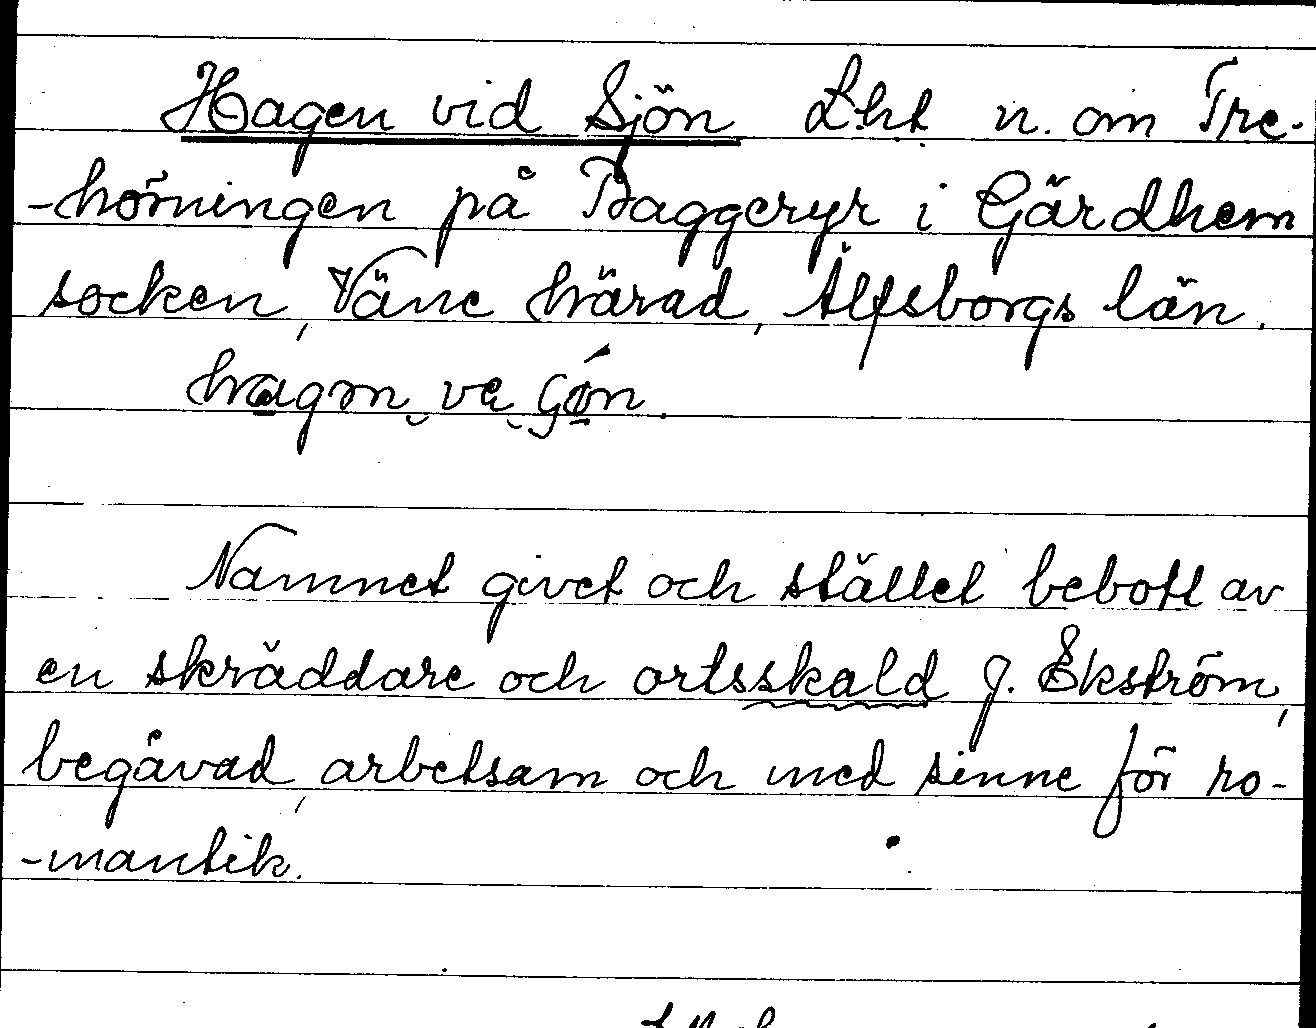 Hagen vid Sjön Lht n. om Tre-
-hörningen på Baggeryr i Gärdhem
socken, Väne härad, Älfsborgs län.
hagɷn ve
Namnet givet och stället bebott av
en skräddare och ortsskald J. Ekström,
begåvad, arbetsam och med sinne för ro-
-mantik.